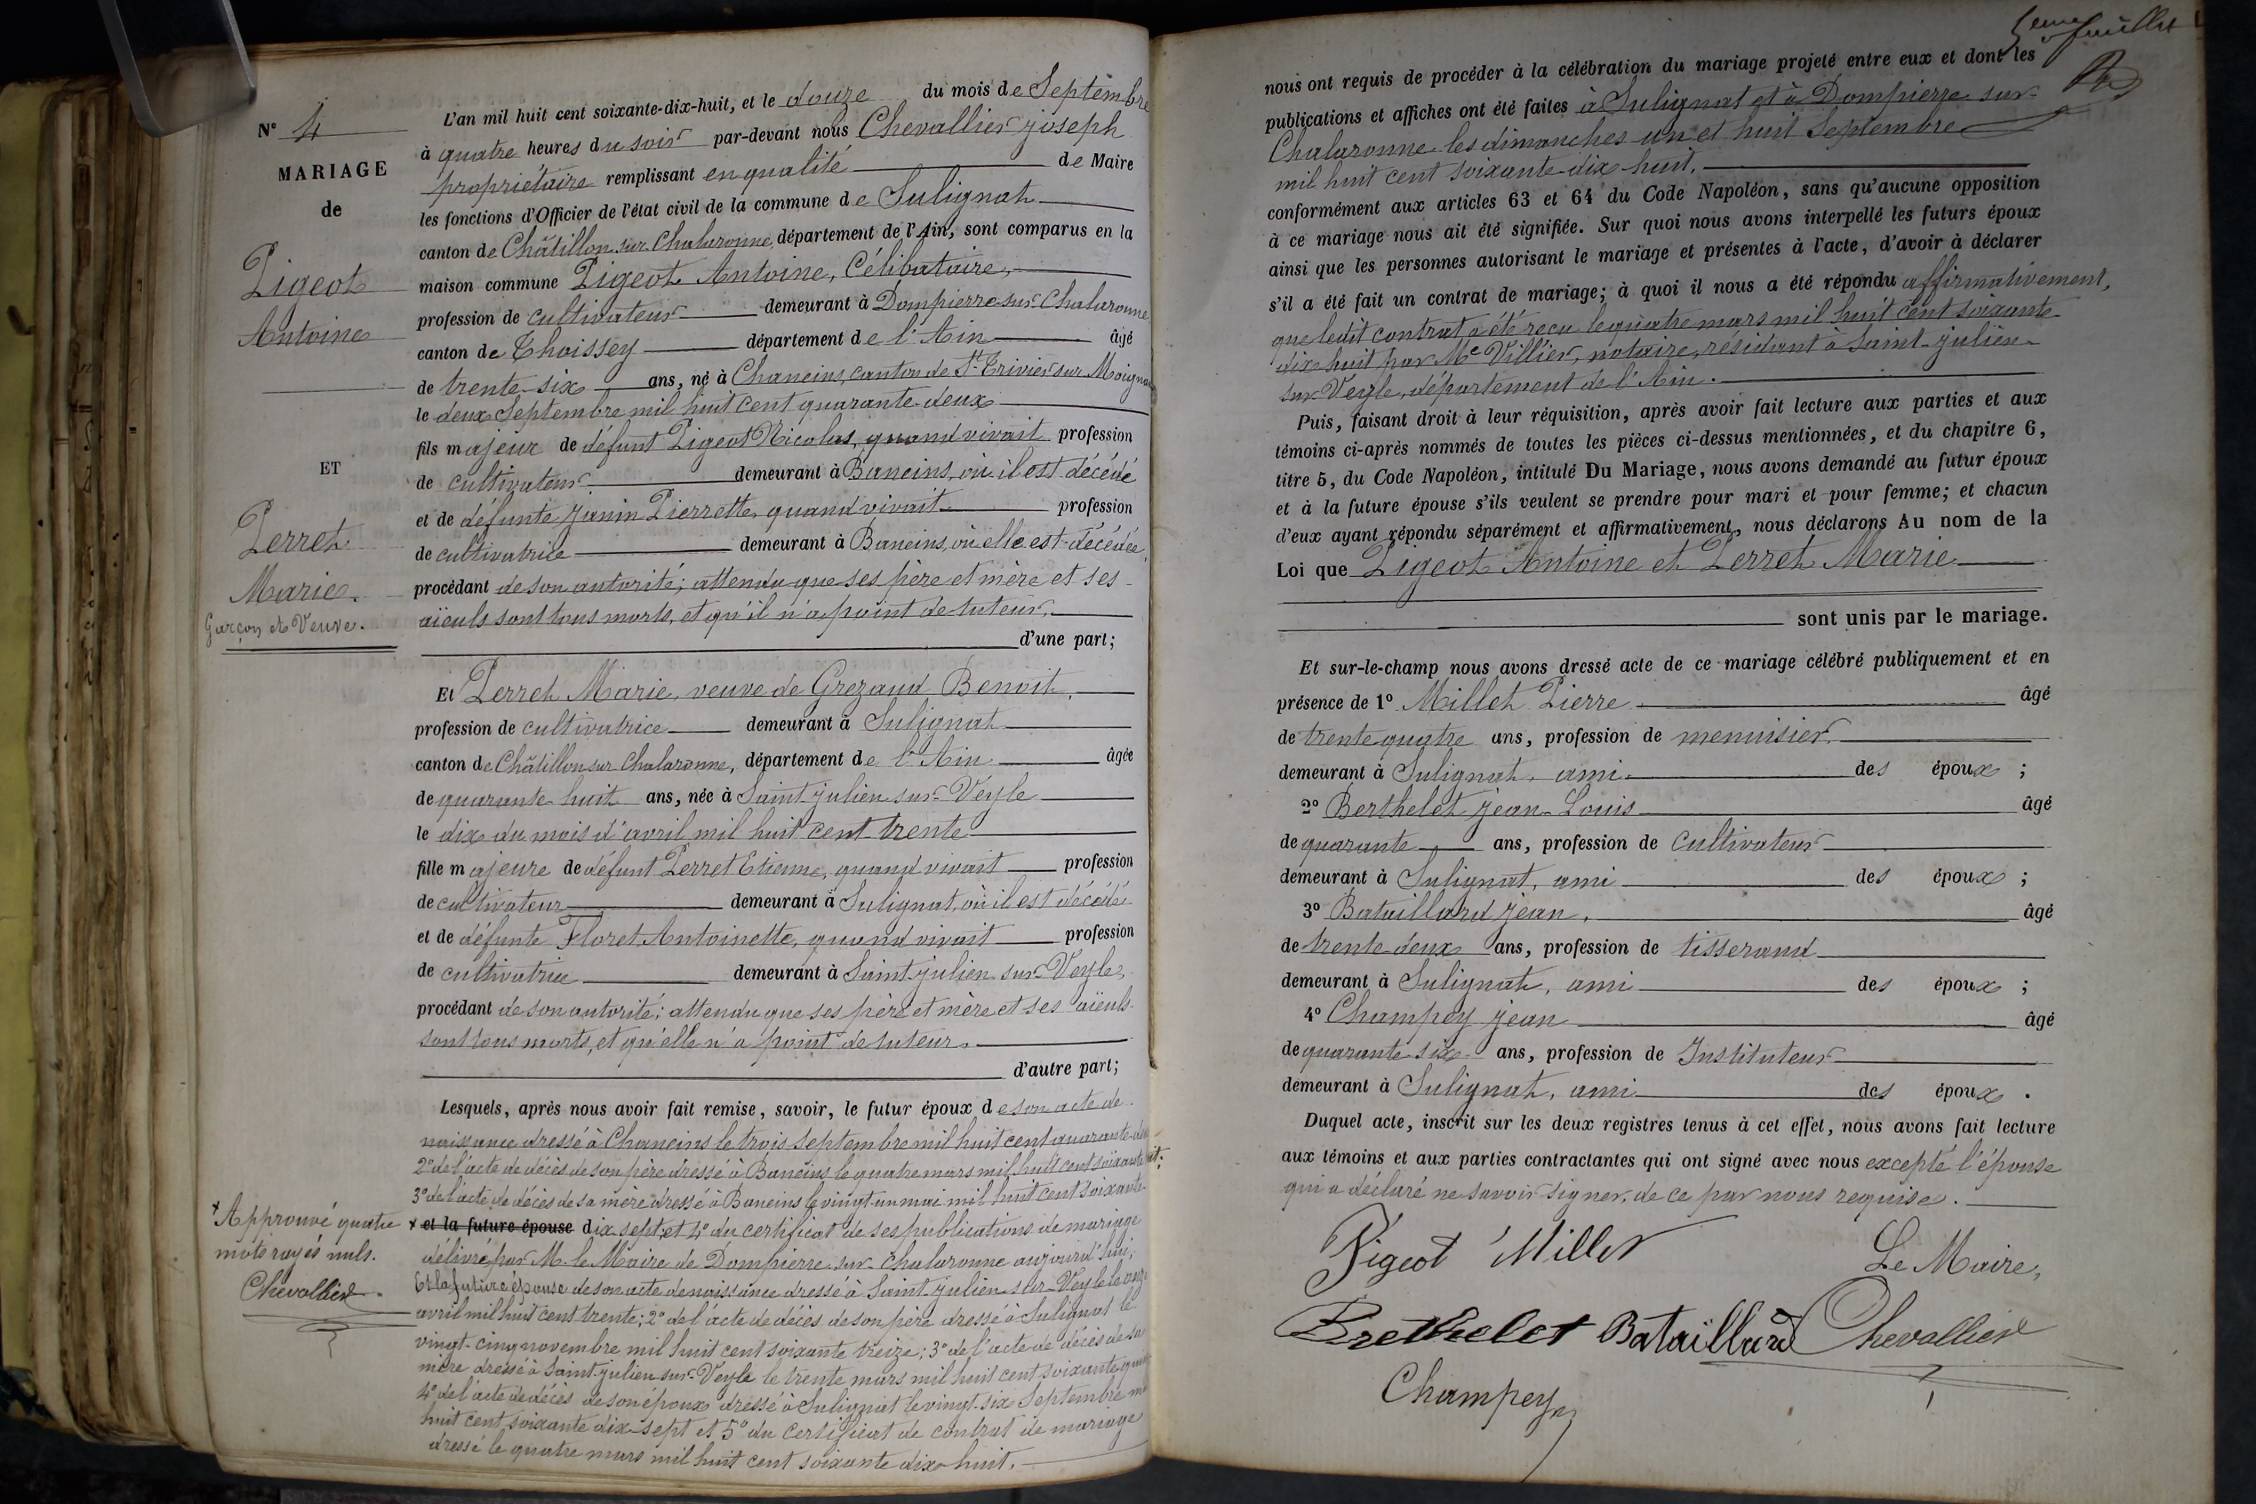 N° 4
MARIAGE
de
Pigeot
Antoine
ET
Perret
Marie.
Garçon et Veuve.
L'an mil huit cent soixante-dix-huit, et le douze du mois de Septembre
à quatre heures du soir par-devant nous Chevallier joseph
propriétaire remplissant en qualité de Maire
les fonctions d'Officier de l'état civil de la commune de Sulignat
canton de Châtillon sur Chalaronne, département de l'Ain, sont comparus en la
maison commune Pigeot Antoine, Célibataire,
profession de cultivateur demeurant à Dompierre sur Chalaronne
canton de Thoissey département de l'Ain âgé
de trente-six ans, né à Chaneins, canton de St Trivier sur Moignans
le deux Septembre mil huit cent quarante-deux
fils majeur de défunt Pigeot Nicolas, quand vivait profession
de cultivateur. demeurant à Baneins, où il est décédé
et de défunte Janin Pierrette, quand vivait profession
de cultivatrice demeurant à Baneins, où elle est décédée,
procédant de son autorité; attendu que ses père et mère et ses
aïeuls sont tous morts, et qu'il n'a point de tuteur.
d'une part;
Et Perret Marie, veuve de Grezaud Benoit,
profession de cultivatrice demeurant à Sulignat
canton de Châtillon sur Chalaronne, département de l'Ain âgée
de quarante huit ans, née à Saint-julien-sur-Veyle
le dix du mois d'avril mil huit cent trente
fille majeure de défunt Perret Etienne, quand vivait profession
de cultivateur demeurant à Sulignat, où il est décédé
et de défunte Floret Antoinette, quand vivait profession
de cultivatrice demeurant à Saint-julien-sur-Veyle,
procédant de son autorité; attendu que ses père et mère et ses aïeuls
sont tous morts, et qu'elle n'a point de tuteur.
d'autre part;
Lesquels, après nous avoir fait remise, savoir, le futur époux de son acte de
naissance dressé à Chaneins le trois Septembre mil huit cent quarante-deux
2° de l'acte de décès de son père dressé à Baneins le quatre mars mil huit cent soixante
3° de l'acte de décès de sa mère dressé à Baneins le vingt-un mai mil huit cent soixante-
x et la future épouse dix sept, et 4° du certificat de ses publications de mariage
délivré par M. le Maire de Dompierre sur Chalaronne aujourd'hui;
Et la future épouse de son acte de naissance dressé à Saint-julien-sur-Veyle le onze
avril mil huit cent trente; 2° de l'acte de décès de son père dressé à Sulignat le
vingt-cinq novembre mil huit cent soixante treize; 3° de l'acte de décès de sa
mère dressé à Saint-julien-sur-Veyle le trente mars mil huit cent soixante
4° de l'acte de décès de son époux dressé à Sulignat le vingt-six Septembre mil
huit cent soixante dix-sept et 5° du certificat de contrat de mariage
dressé le quatre mars mil huit cent soixante dix-huit.
x Approuvé quatre
mots rayés nuls.
Chevallier
5eme feuillet
nous ont requis de procéder à la célébration du mariage projeté entre eux et dont les
publications et affiches ont été faites à Sulignat et à Dompierre sur
Chalaronne les dimanches un et huit Septembre
mil huit cent soixante-dix huit.
conformément aux articles 63 et 64 du Code Napoléon, sans qu'aucune opposition
à ce mariage nous ait été signifiée. Sur quoi nous avons interpellé les futurs époux
ainsi que les personnes autorisant le mariage et présentes à l'acte, d'avoir à déclarer
s'il a été fait un contrat de mariage; à quoi il nous a été répondu affirmativement,
que ledit contrat a été reçu le quatre mars mil huit cent soixante-
dix huit par Me Villier, notaire, résidant à Saint-julien-
sur-Veyle, département de l'Ain.
Puis, faisant droit à leur réquisition, après avoir fait lecture aux parties et aux
témoins ci-après nommés de toutes les pièces ci-dessus mentionnées, et du chapitre 6,
titre 5, du Code Napoléon, intitulé Du Mariage, nous avons demandé au futur époux
et à la future épouse s'ils veulent se prendre pour mari et pour femme; et chacun
d'eux ayant répondu séparément et affirmativement, nous déclarons Au nom de la
Loi que Pigeot Antoine et Perret Marie
sont unis par le mariage.
Et sur-le-champ nous avons dressé acte de ce mariage célébré publiquement et en
présence de 1° Millet Pierre âgé
de trente quatre ans, profession de menuisier.
demeurant à Sulignat, ami des époux ;
2° Berthelet jean-Louis âgé
de quarante ans, profession de cultivateur
demeurant à Sulignat, ami des époux ;
3° Bataillard jean, âgé
de trente-deux ans, profession de tisserand
demeurant à Sulignat, ami des époux ;
4° Champey jean âgé
de quarante-six ans, profession de Instituteur
demeurant à Sulignat, ami des époux .
Duquel acte, inscrit sur les deux registres tenus à cet effet, nous avons fait lecture
aux témoins et aux parties contractantes qui ont signé avec nous excepté l'épouse
qui a déclaré ne savoir signer, de ce par nous requise.
Pigeot Millet
Le Maire,
Brethelet Bataillard Chevallier
Champey